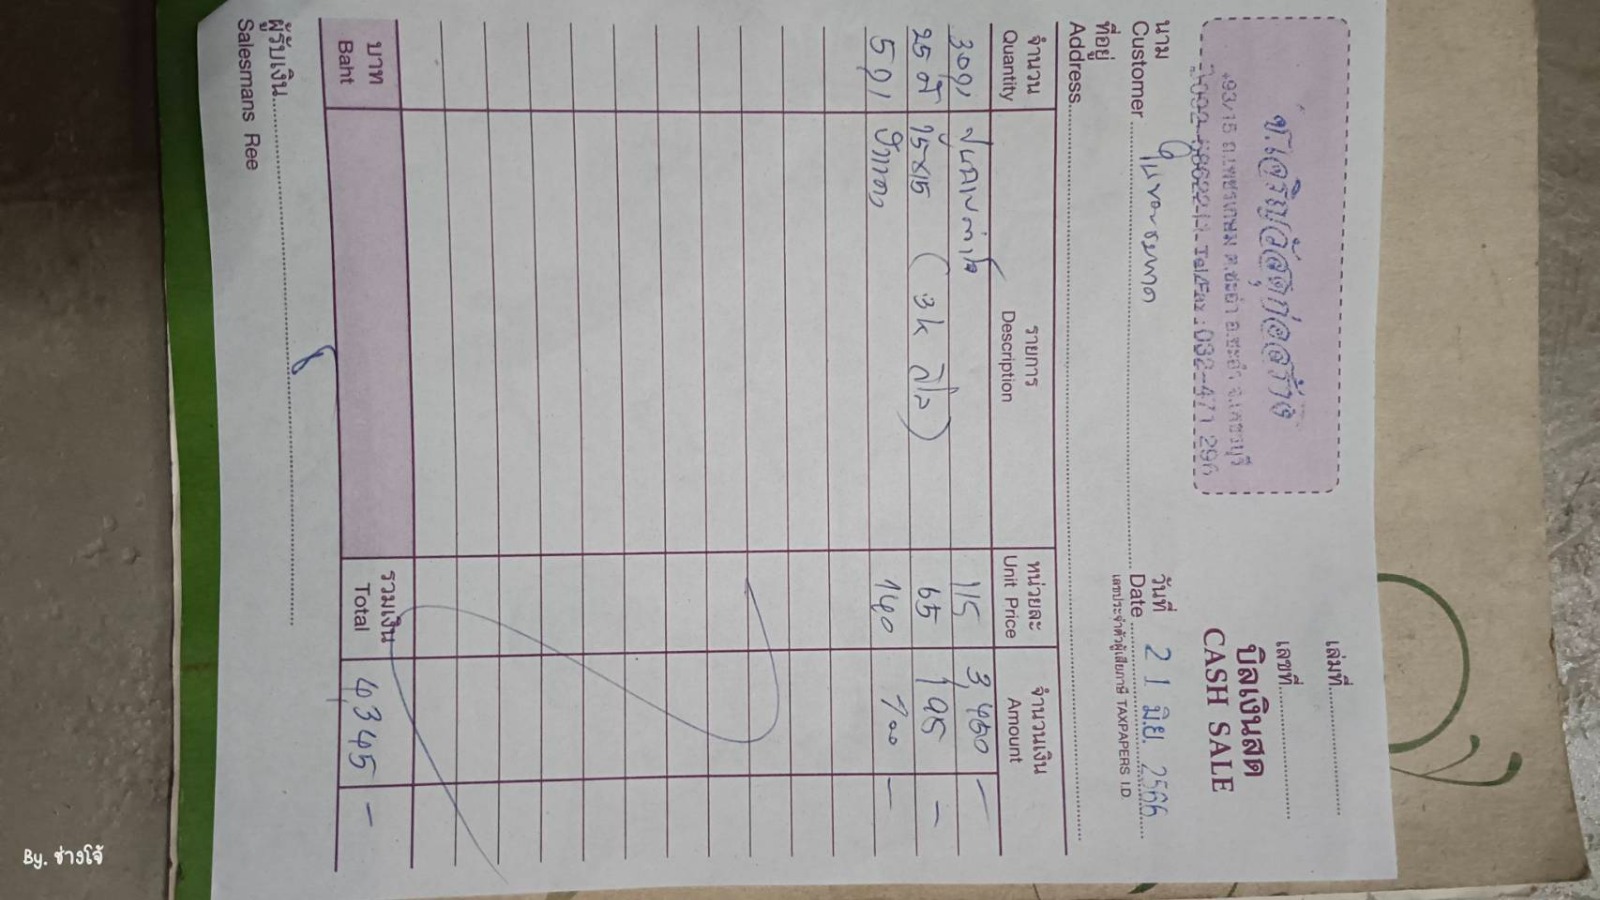 ช.เจริญวัสดุก่อสร้าง
493/15 ถ.เพชรเกษม ต.ชะอำ อ.ชะอำ จ.เพชรบุรี
Tel/Fax : 032-471 296
เล่มที่
เลขที่
บิลเงินสด
CASH SALE
นาม
Customer
วันที่ 21 มิ.ย. 2566
Date
เลขประจำตัวผู้เสียภาษี TAXPAPERS I.D.
ที่อยู่
Address
จำนวน รายการ หน่วยละ จำนวนเงิน
Quantity Description Unit Price Amount
30 115 3,450 -
25 15x15 ( 3k ) 65 195 -
5 140 700 -
บาท รวมเงิน 4,345 -
Baht Total
ผู้รับเงิน
Salesmans Ree
By. ช่างโจ้